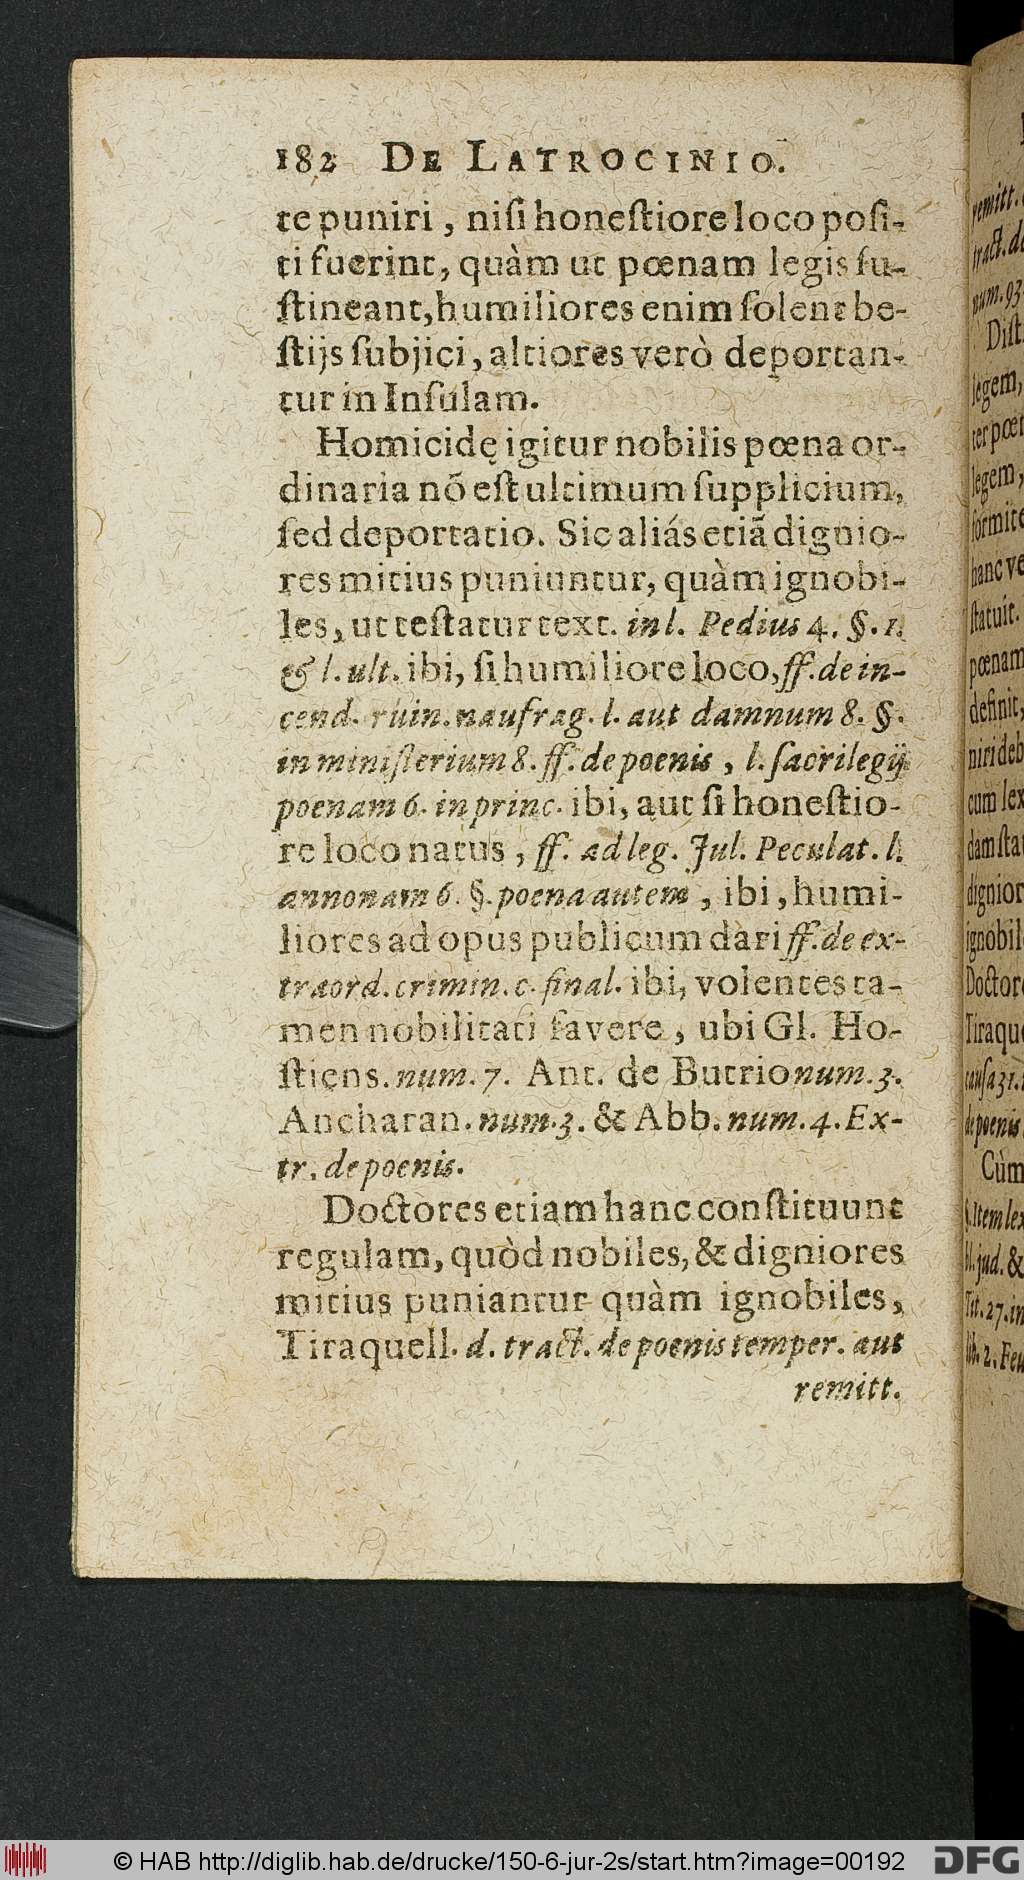 182 DE LATROCINIO.
te puniri, niſi honeſtiore loco poſi-
ti fuerint, quàm ut pœnam legis ſu-
ſtineant, humiliores enim ſolent be-
ſtijs ſubjici, altiores verò deportan-
tur in Inſulam.
Homicidę igitur nobilis pœna or-
dinaria nõ eſt ultimum ſupplicium,
ſed deportatio. Sic aliás etiã dignio-
res mitius puniuntur, quàm ignobi-
les, ut teſtatur text. in l. Pedius 4. §. 1.
& l. ult. ibi, ſi humiliore loco, ff. de in-
cend. ruin. naufrag. l. aut damnum 8. §.
in miniſterium 8. ff. de poenis, l. ſacrilegij
poenam 6. in princ. ibi, aut ſi honeſtio-
re loco natus, ff. ad leg. Jul. Peculat. l.
annonam 6. §. poena autem, ibi, humi-
liores ad opus publicum dari ff. de ex-
traord. crimin. c. final. ibi, volentes ta-
men nobilitati favere, ubi Gl. Ho-
ſtiens. num. 7. Ant. de Butrio num. 3.
Ancharan. num. 3. & Abb. num. 4. Ex-
tr. de poenis.
Doctores etiam hanc conſtituunt
regulam, quòd nobiles, & digniores
mitius puniantur quàm ignobiles,
Tiraquell. d. tract. de poenis temper. aut
remitt.
remitt.
tract. de
num. 93.
legem,
legem,
ſtatuit.
pœnam
definit,
cum lex
Tiraque
cauſa 31.
de poenis
Cùm
§. Item lex
jud. &
Tit. 27. in
lib. 2. Feu
© HAB http://diglib.hab.de/drucke/150-6-jur-2s/start.htm?image=00192
DFG